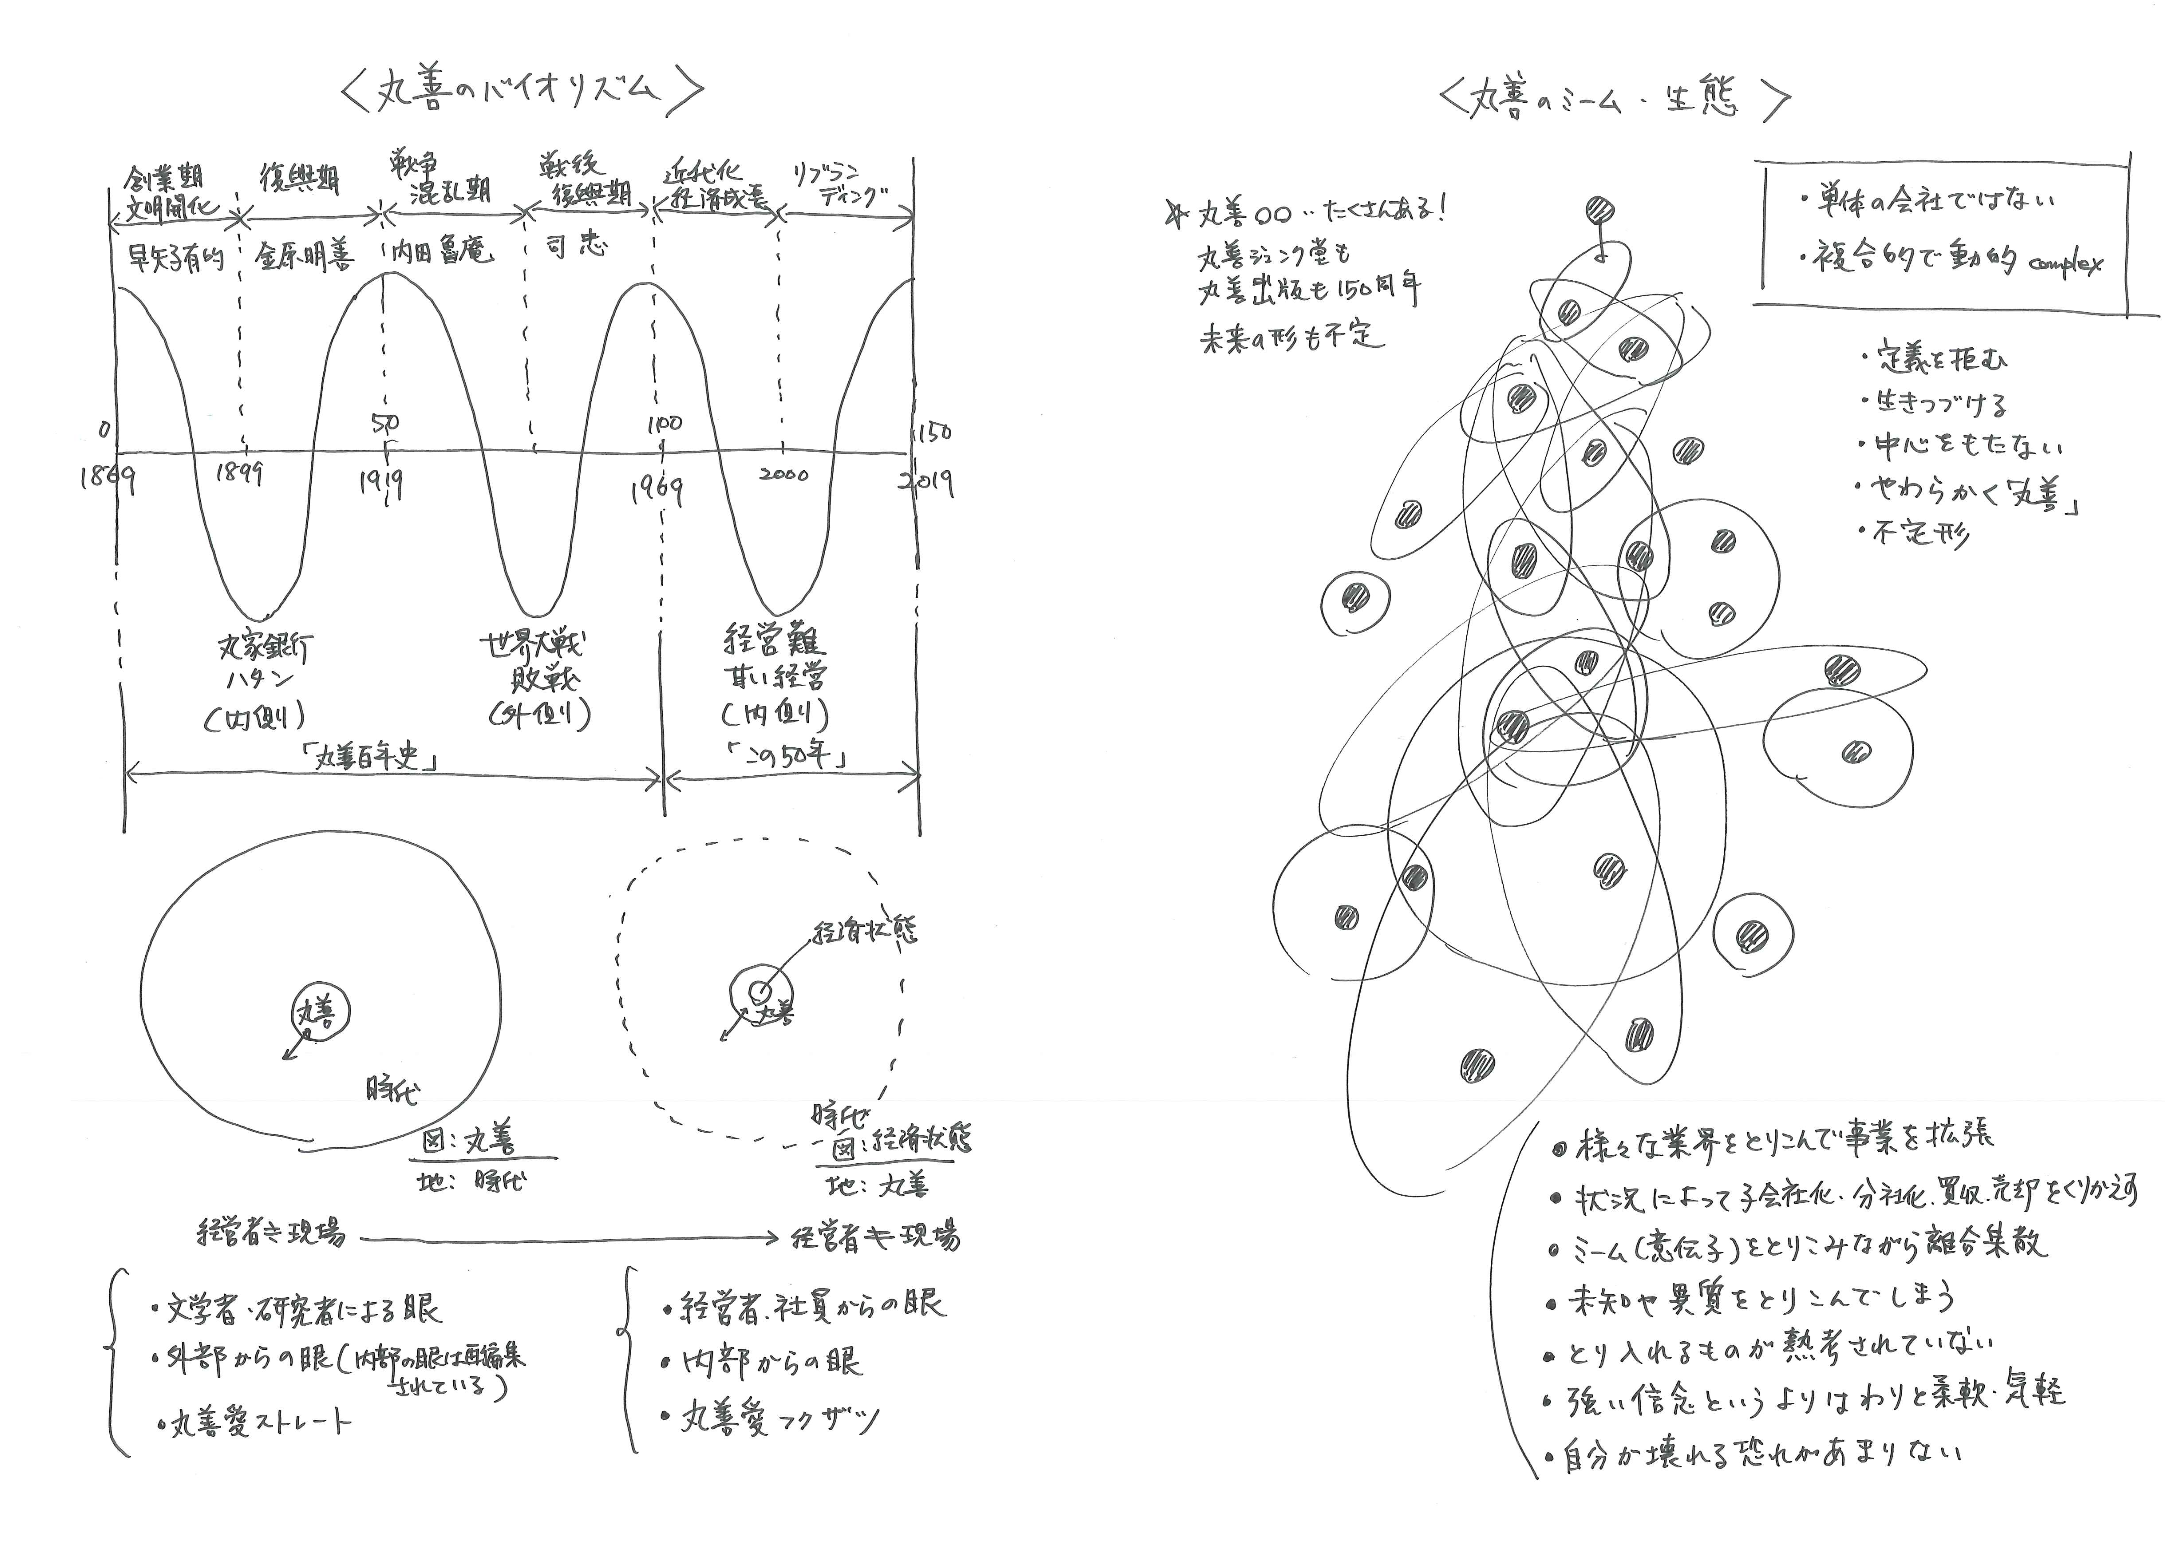 〈丸善のバイオリズム〉
創業期
文明開化
復興期
戦争
混乱期
戦後
復興期
近代化
経済成長
リブラン
ディング
早矢仕有的
金原明善
内田魯庵
司忠
0
50
100
150
1869
1899
1919
1969
2000
2019
丸家銀行
ハタン
(内側)
世界大戦
敗戦
(外側)
経営難
甘い経営
(内側)
「丸善百年史」
「この50年」
丸善
時代
図:丸善
地:時代
経済状態
丸善
時代
図:経済状態
地:丸善
経営者≒現場
経営者≠現場
・文学者・研究者による眼
・外部からの眼(内部の眼は再編集
されている)
・丸善愛ストレート
・経営者、社員からの眼
・内部からの眼
・丸善愛フクザツ
〈丸善のミーム・生態〉
＊丸善〇〇‥たくさんある!
丸善ジュンク堂も
丸善出版も150周年
未来の形も不定
・単体の会社ではない
・複合的で動的complex
・定義を拒む
・生きつづける
・中心をもたない
・やわらかく「丸善」
・不定形
・様々な業界をとりこんで事業を拡張
・状況によって子会社化・分社化、買収、売却をくりかえす
・ミーム(意伝子)をとりこみながら離合集散
・未知や異質をとりこんでしまう
・とり入れるものが熟考されていない
・強い信念というよりはわりと柔軟・気軽
・自分が壊れる恐れがあまりない